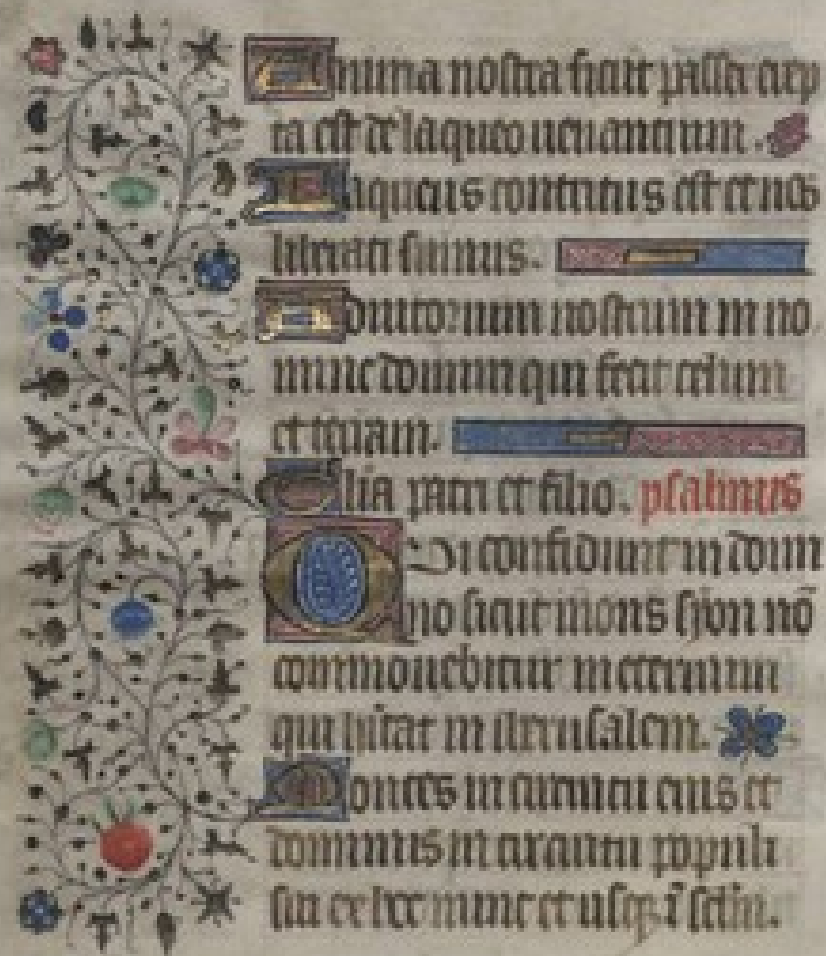 Anima nostra sicut passer erep
ta est de laqueo uenantium.
Laqueus contritus est et nos
liberati sumus.
Adiutorium nostrum in no
mine domini qui fecit celum
et terram.
Glia patri et filio. psalmus
Qui confidunt in domi
no sicut mons syon nō
commouebitur in eternum
qui hītat in iherusalem.
Montes in circuitu eius et
dominus in circuitu populi
sui ex hoc nunc et usqȝ ī sclm.